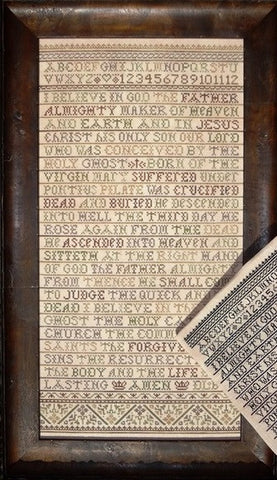 ABCDEFGHIJKLMNOPQRSTU
VWXYZ 123456789101112
I BELIEVE IN GOD THE FATHER
ALMIGHTY MAKER OF HEAVEN
AND EARTH AND IN JESUS
CHRIST HIS ONLY SON OUR LORD
WHO WAS CONCEIVED BY THE
HOLY GHOST BORN OF THE
VIRGIN MARY SUFFERED UNDER
PONTIUS PILATE WAS CRUCIFIED
DEAD AND BURIED HE DESCENDED
INTO HELL THE THIRD DAY HE
ROSE AGAIN FROM THE DEAD
HE ASCENDED INTO HEAVEN AND
SITTETH AT THE RIGHT HAND
OF GOD THE FATHER ALMIGHT
FROM THENCE HE SHALL CO
TO JUDGE THE QUICK AN
DEAD I BELIEVE IN THE
GHOST THE HOLY C
CHURCH THE
SAINTS THE FORGIVE
SINS THE RESURRECT
THE BODY AND THE LIFE
LASTING AMEN